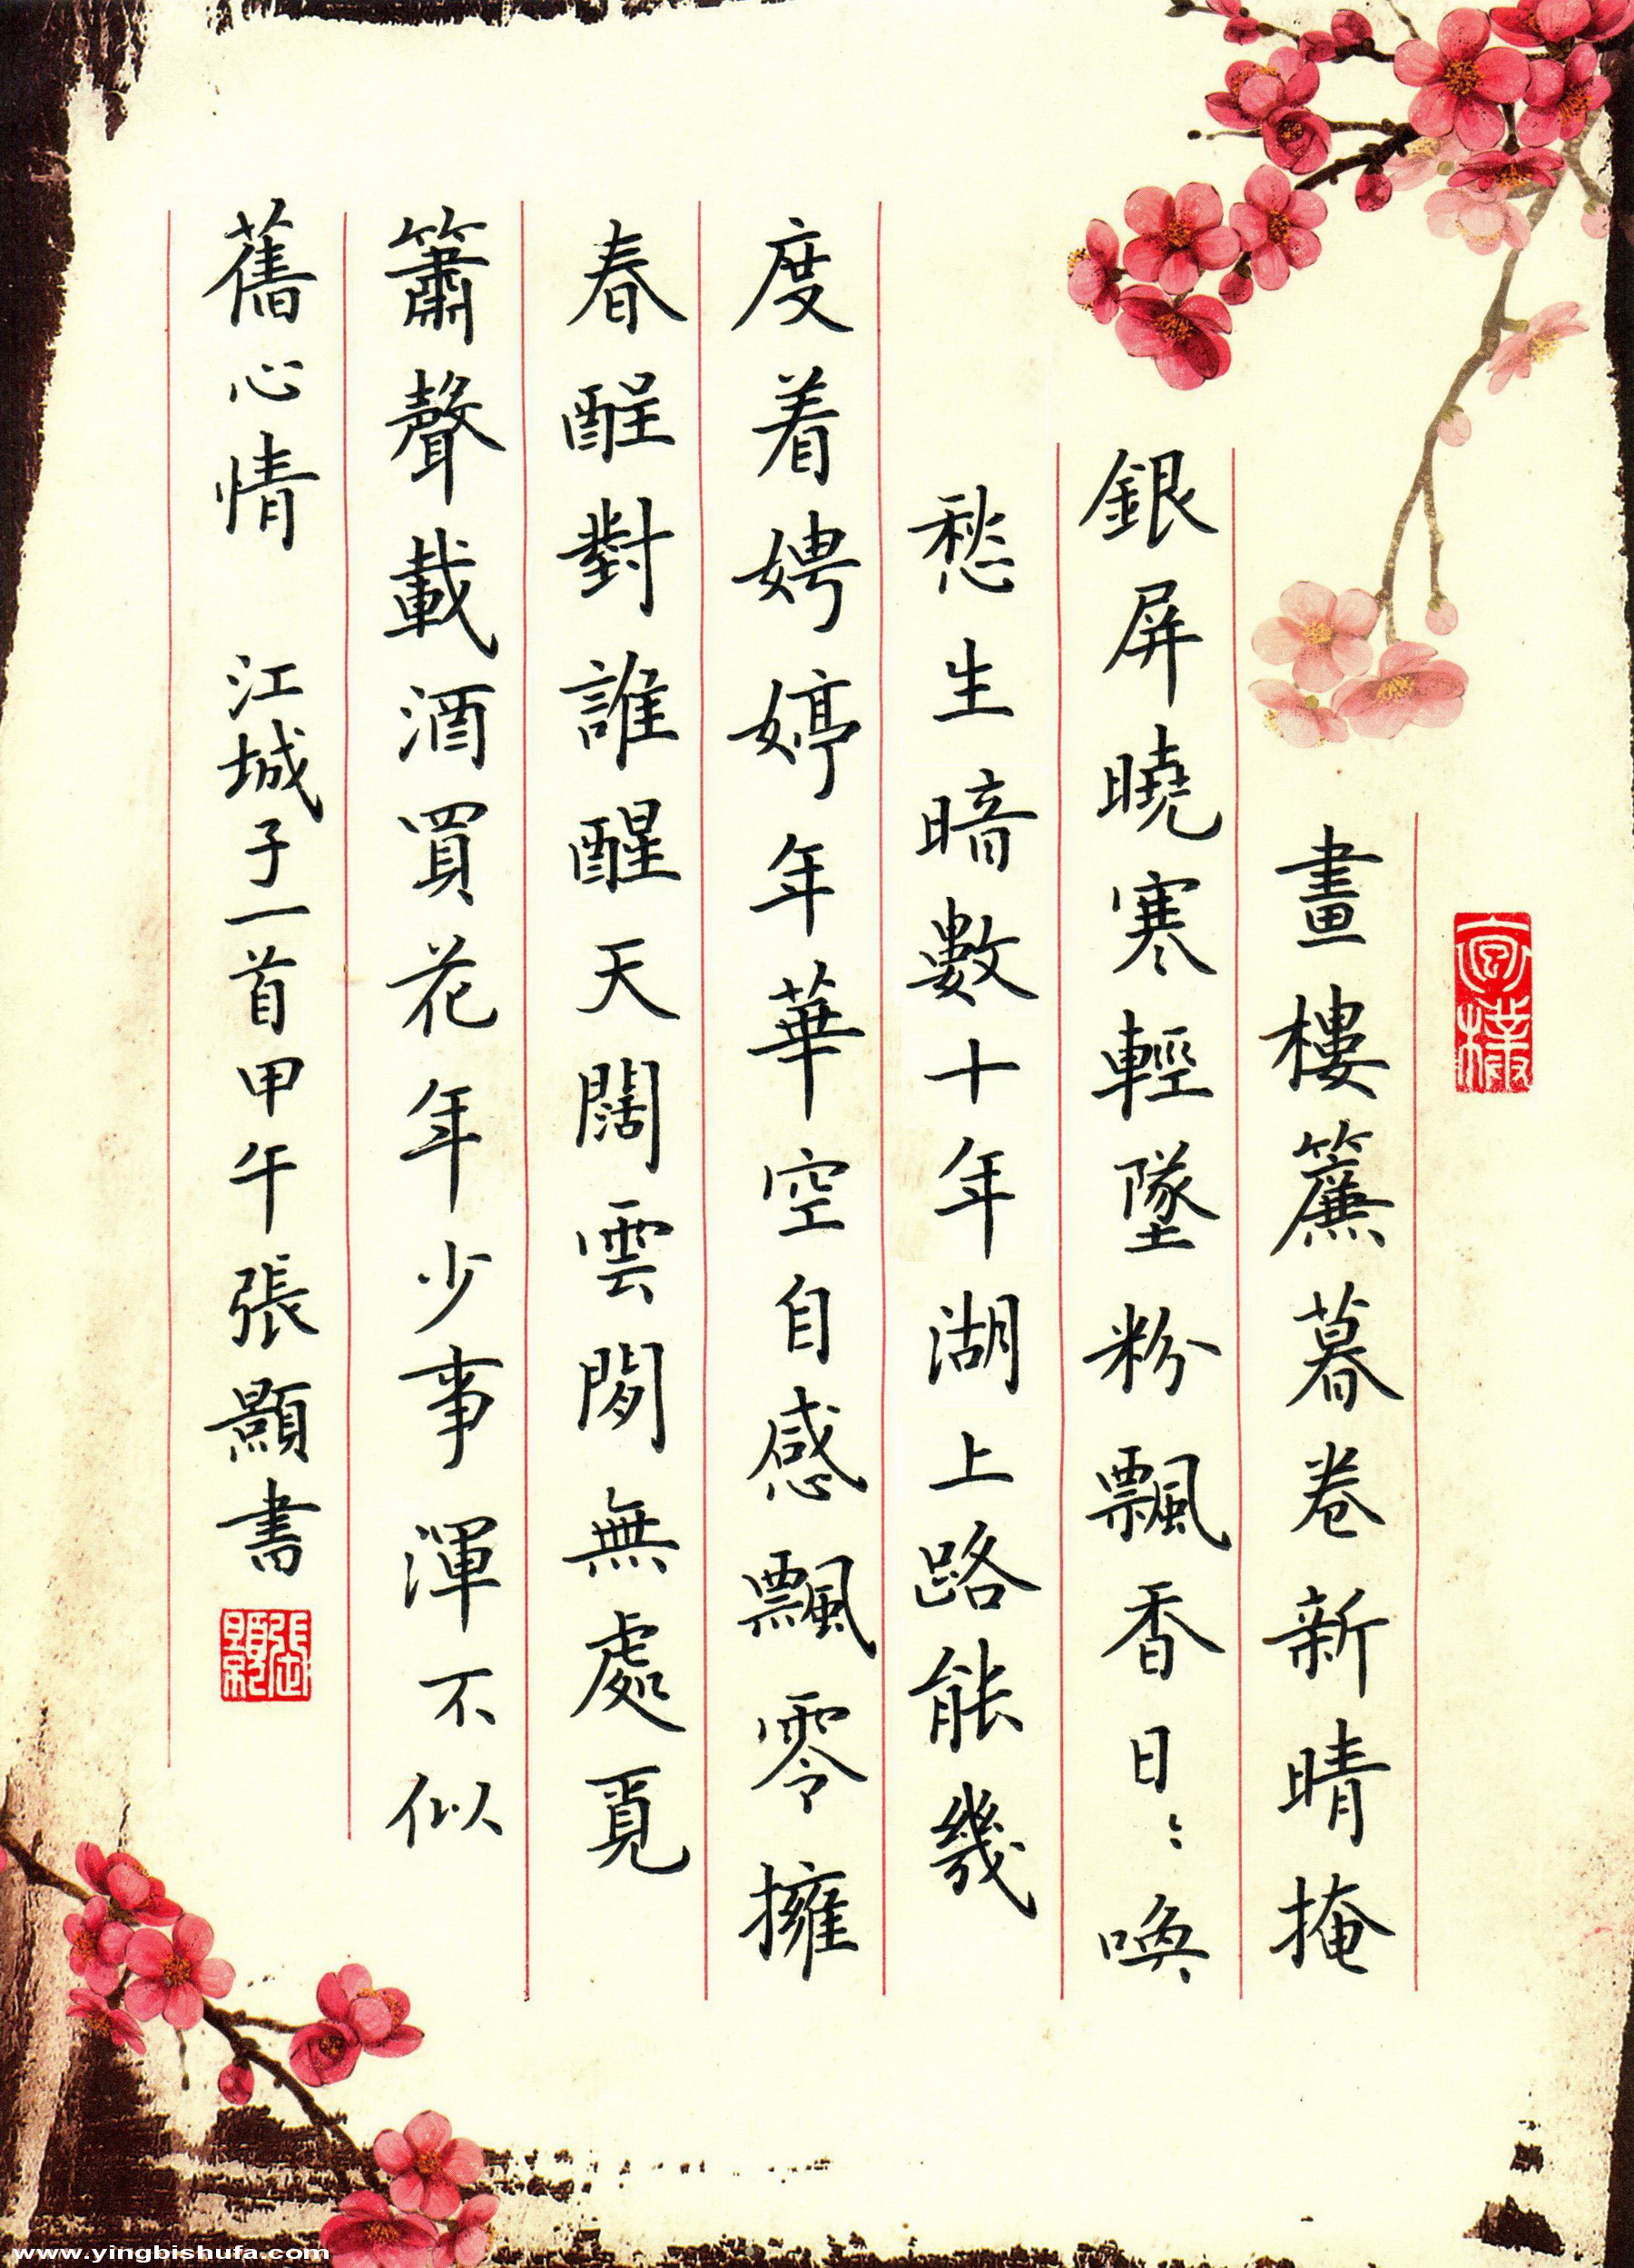 畫樓簾暮卷新晴掩
銀屏曉寒輕墜粉飄香日〻喚
愁生暗數十年湖上路能幾
度着娉婷年華空自感飄零擁
春酲對誰醒天闊雲閒無處覓
簫聲載酒買花年少事渾不似
舊心情 江城子一首甲午張顯書
www.yingbishufa.com